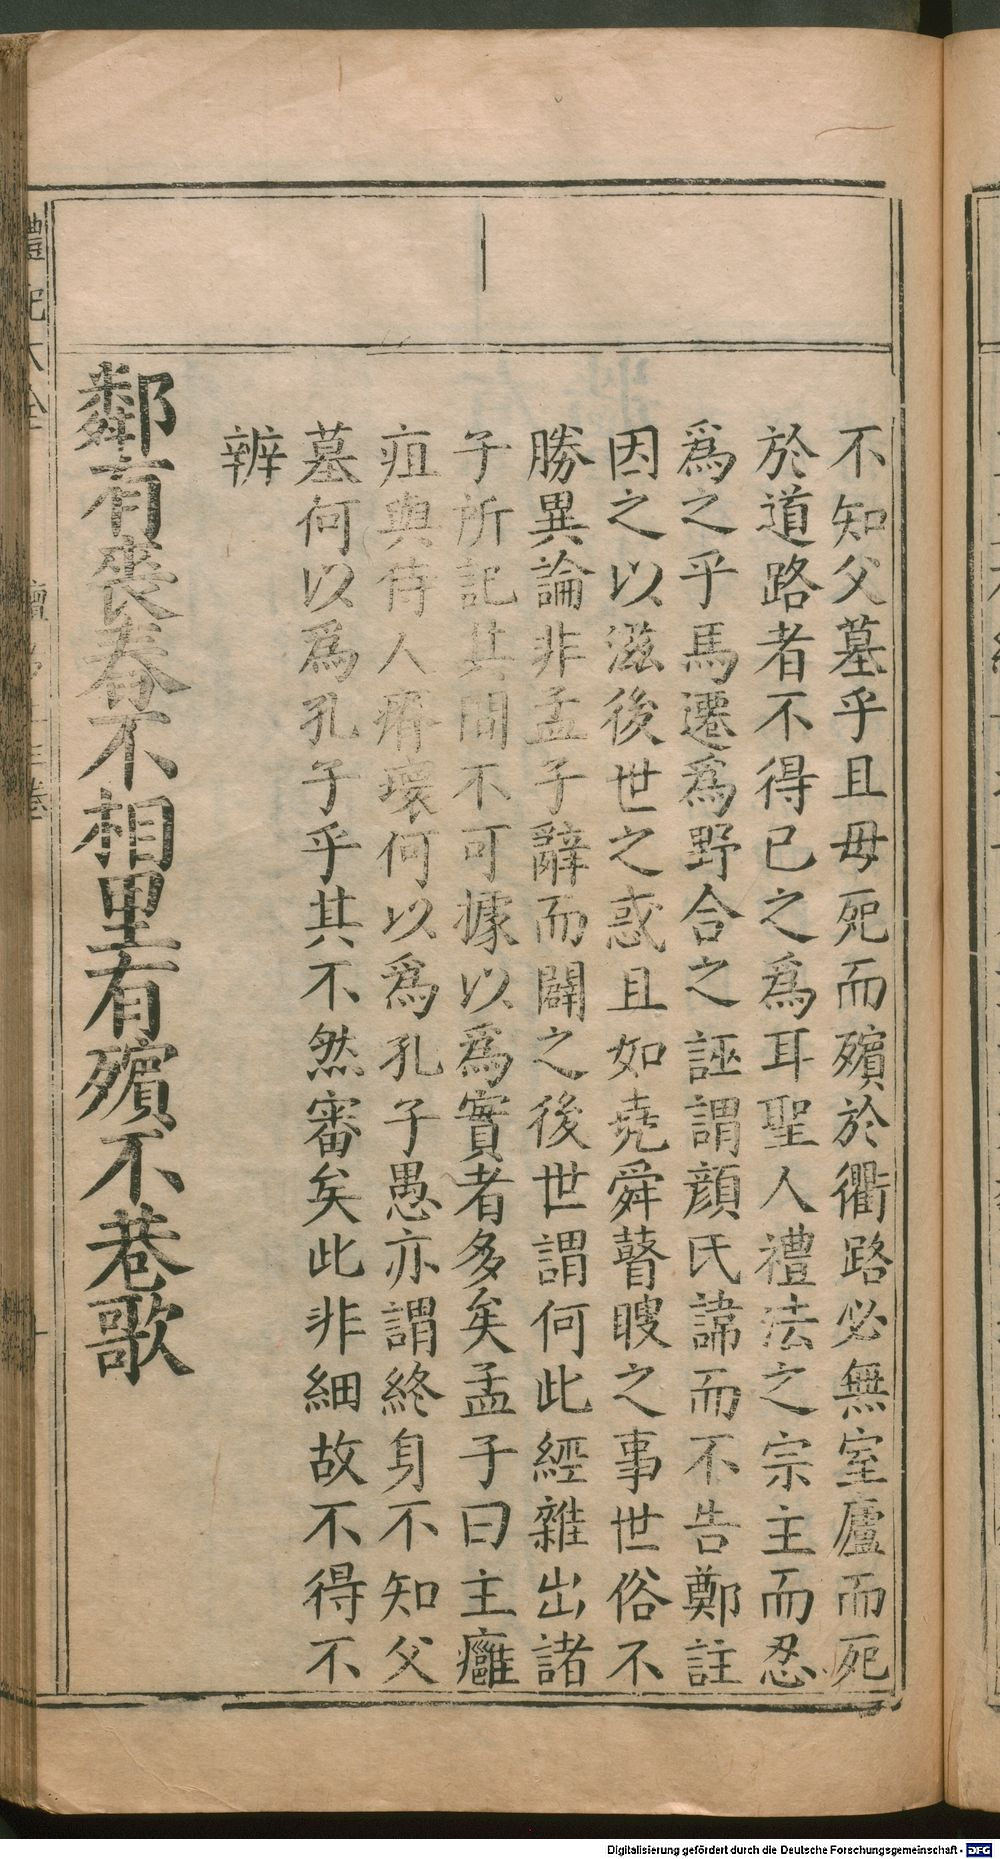 不知父墓乎且母死而殯於衢路必無室廬而死
於道路者不得已之爲耳聖人禮法之宗主而忍
爲之乎馬遷爲野合之誣謂顔氏諱而不告鄭註
因之以滋後世之惑且如堯舜瞽瞍之事世俗不
勝異論非孟子辭而闢之後世謂何此經雜出諸
子所記其間不可據以爲實者多矣孟子曰主癰
疽與侍人瘠環何以爲孔子愚亦謂終身不知父
墓何以爲孔子乎其不然審矣此非細故不得不
辨
鄰有喪舂不相里有殯不巷歌
禮記大全
Digitalisierung gefördert durch die Deutsche Forschungsgemeinschaft - DFG